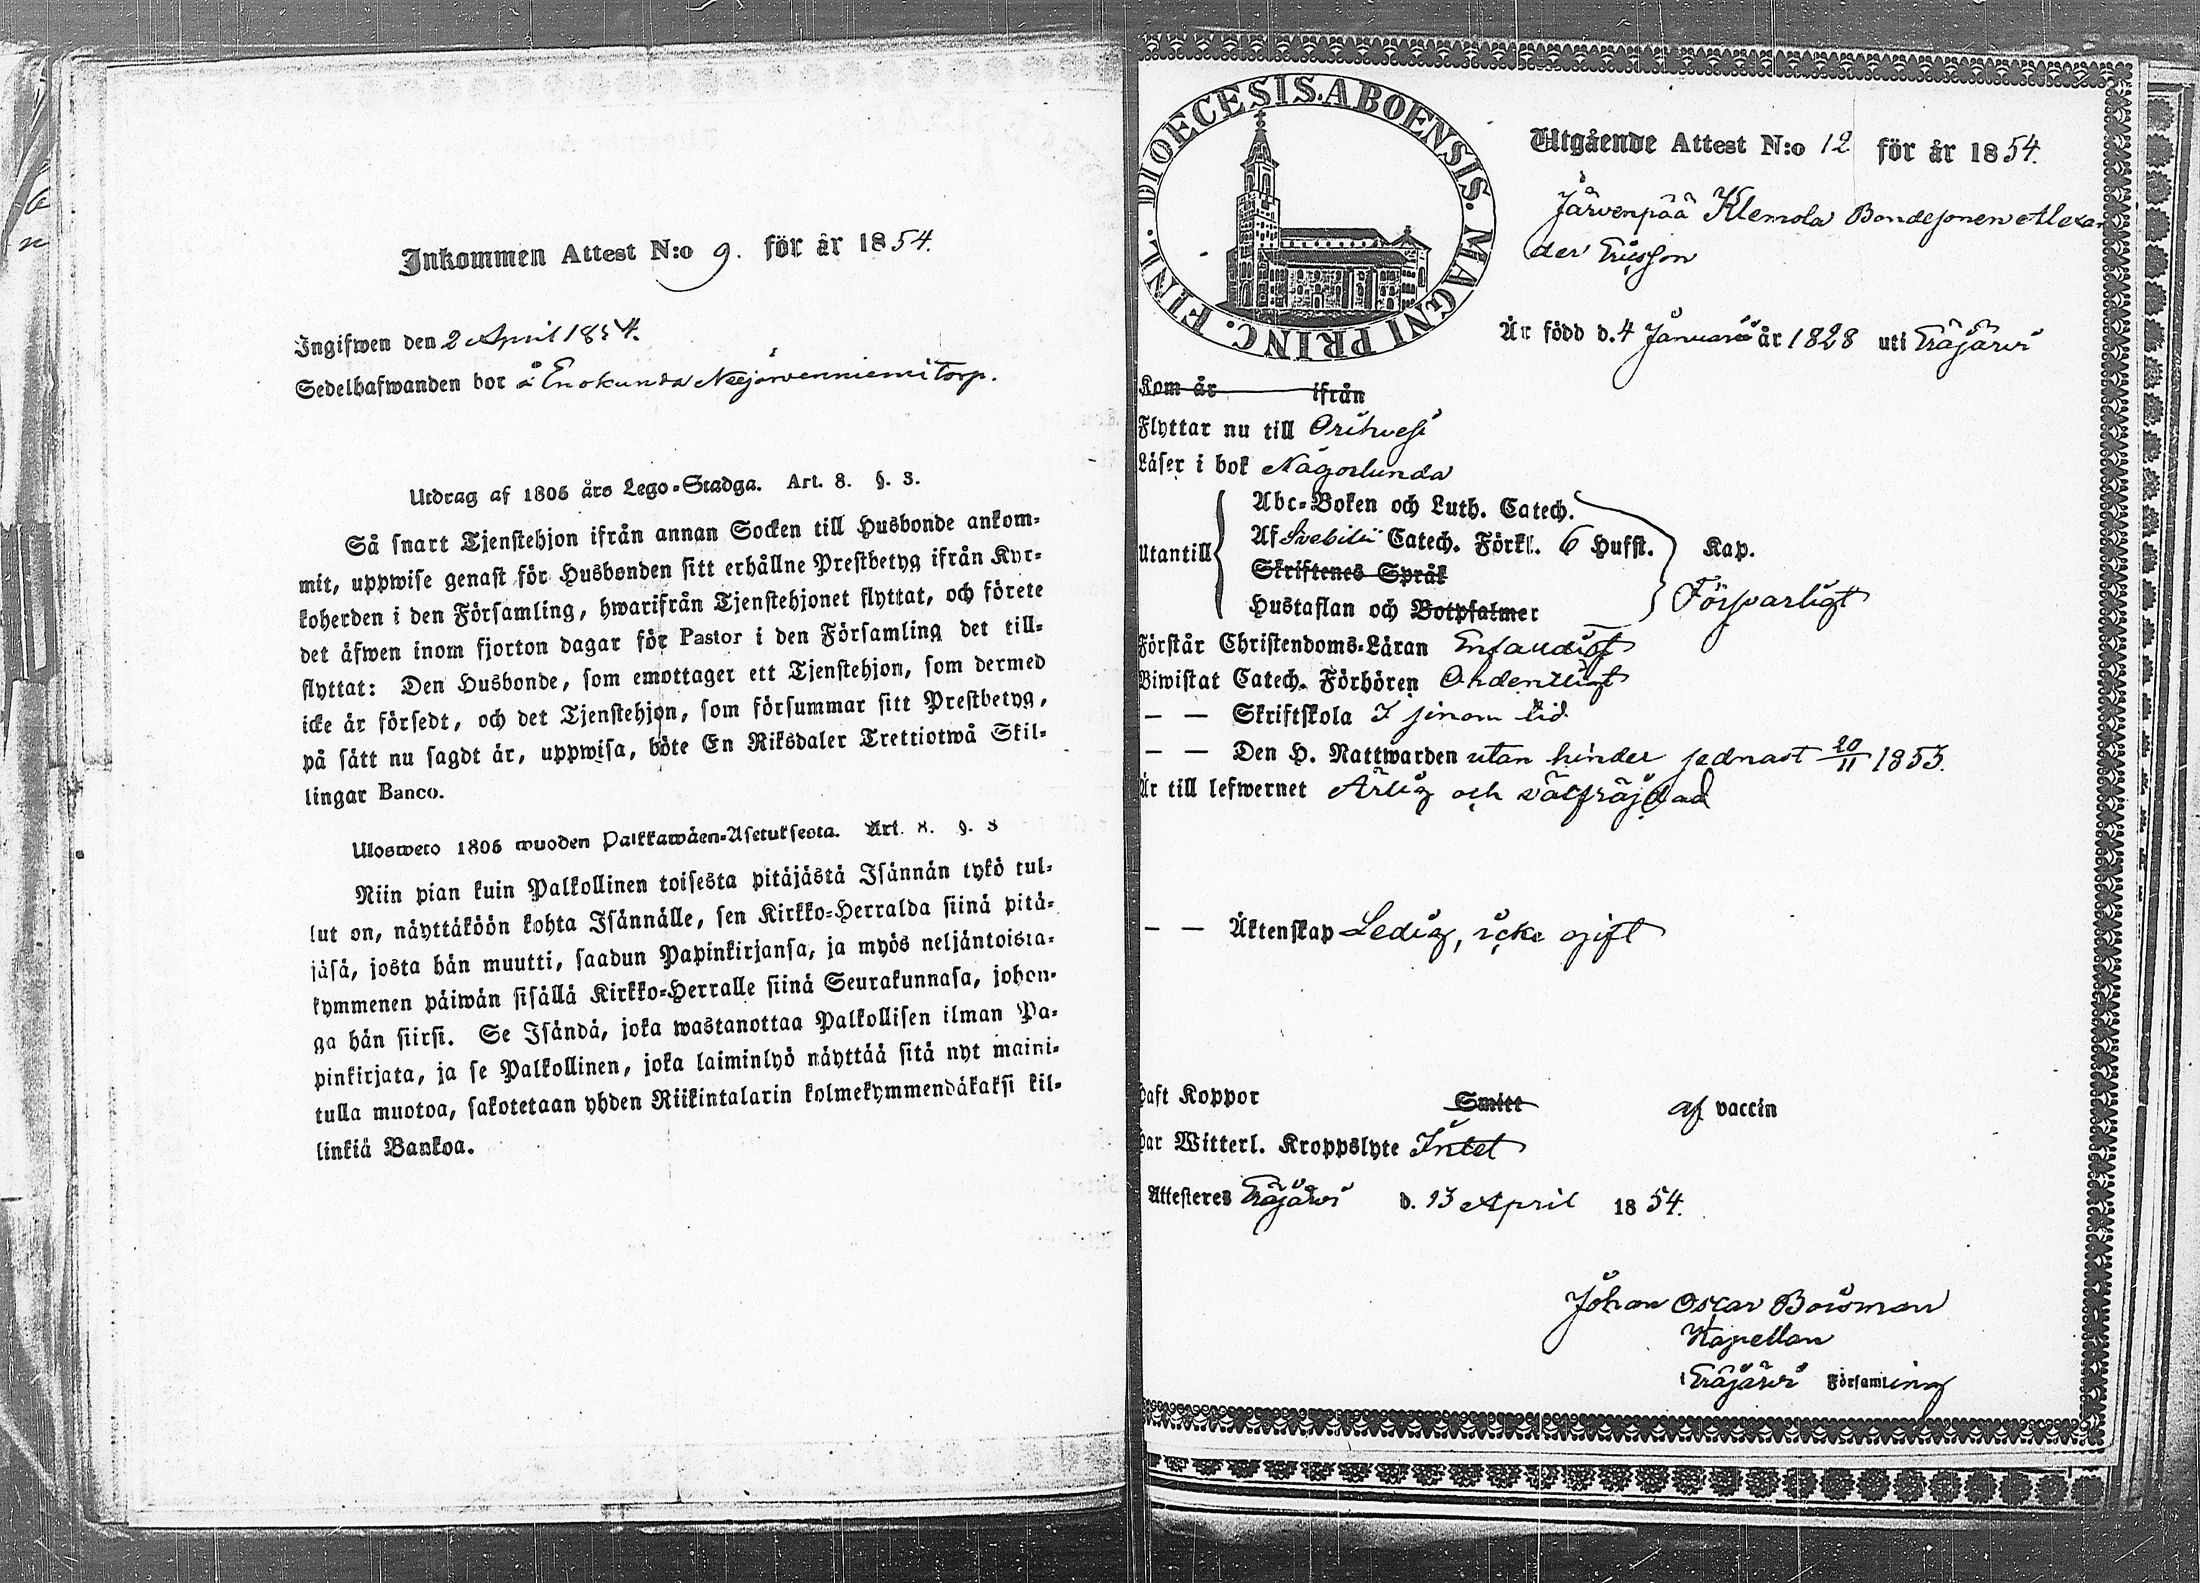 Inkommen Attest N:o 9. för år 1854.
Ingifwen den 2 April 1854.
Sedelhafwanden bor å Enokunda Torp.
Utdrag af 1805 års Lego-Stadga. Art. 8. §. 3.
Så snart Tjenstehjon ifrån annan Socken till Husbonde ankom-
mit, uppwise genast för Husbonden sitt erhållne Prestbetyg ifrån Kyr-
koherden i den Församling, hwarifrån Tjenstehjonet flyttat, och förete
det äfwen inom fjorton dagar för Pastor i den Församling det till-
flyttat: Den Husbonde, som emottager ett Tjenstehjon, som dermed
icke är försedt, och det Tjenstehjon, som försummar sitt Prestbetyg,
på sätt nu sagdt är, uppwisa, böte En Riksdaler Trettiotwå Skil-
lingar Banco.
Ulosweto 1805 wuoden Palkkawäen-Asetuksesta. Art. 8. §. 3
Niin pian kuin Palkollinen toisesta pitäjästä Isännän tykö tul-
lut on, näyttäköön kohta Isännälle, sen Kirkko-Herralda siinä pitä-
jäsä, josta hän muutti, saadun Papinkirjansa, ja myös neljäntoista-
kymmenen päiwän sisällä Kirkko-Herralle siinä Seurakunnasa, johon-
ga hän siirsi. Se Isändä, joka wastanottaa Palkollisen ilman Pa-
pinkirjata, ja se Palkollinen, joka laiminlyö näyttää sitä nyt maini-
tulla muotoa, sakotetaan yhden Riikintalarin kolmekymmendäkaksi kil-
linkiä Bankoa.
DIOECESIS. ABOENSIS. MAGNI PRINC. FINL.
Utgående Attest N:o 12 för år 1854.
Järvenpää Klemola Bondesonen Alexan
der Ericsson
Är född d. 4 Januarii år 1828 uti Eräjärvi
Kom år ifrån
Flyttar nu till Orihvesi
Läser i bok Någorlunda
Utantill
Abc-Boken och Luth. Catech.
Af Svebilii Catech. Förkl. 6 Hufst. Kap.
Skriftenes Språk
Hustaflan och Botpsalmer
Försvarligt
Förstår Christendoms-Läran Enfaudigt
Biwistat Catech. Förhören Ordentligt
— — Skriftskola I sinom tid
— — Den H. Nattwarden utan hinder sednast 20/11 1853.
Är till lefwernet Ärlig och välfräjdad
— — Äktenskap Ledig, icke gift
Haft Koppor Smitt af vaccin
Har Witterl. Kroppslyte Intet
Attesteres Eräjärvi d. 13 April 1854.
Johan Oscar Boisman
Kapellan
i Eräjärvi Församling